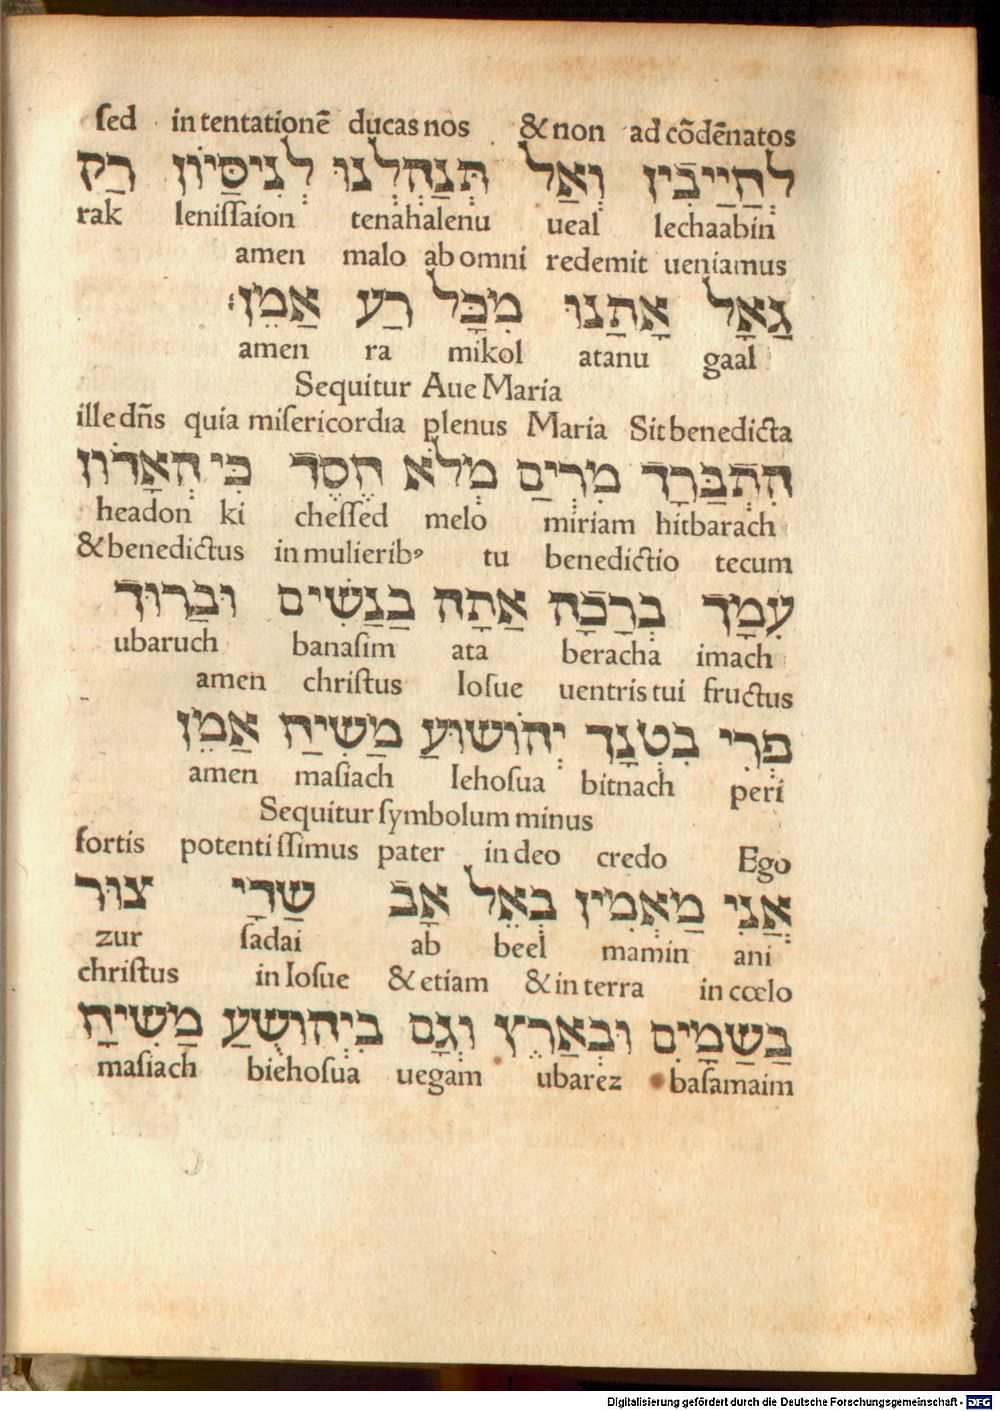 sed in tentationē ducas nos & non ad cōdēnatos
לְחַיַיבִין וְאַל תְּנַהְלְנוּ לְנִיסַּיוֹן רַק
rak leniſſaion tenahalenu ueal lechaabin
amen malo ab omni redemit ueniamus
גַאָל אָתַנוּ מִכָּל רַע אַמֵן׃
amen ra mikol atanu gaal
Sequitur Aue Maria
ille dn̄s quia miſericordia plenus Maria Sit benedicta
הִתְבַּרָךְ מִרְיַם מְלֹא חֶסֶד כִּי הְאָדוֹן
headon ki cheſſed melo miriam hitbarach
& benedictus in mulierib⁹ tu benedictio tecum
עִמָךְ בְּרָבָה אַתָה בַנַשִׁים וּבַרוּךְ
ubaruch banaſim ata beracha imach
amen chriſtus Ioſue uentris tui fructus
פְּרִי בִטְנָךְ יְהוֹשׁוּעַ מַשִׁיחַ אַמֵן
amen maſiach Iehoſua bitnach peri
Sequitur ſymbolum minus
fortis potentiſſimus pater in deo credo Ego
אֲנִי מַאְמִין בְּאֵל אָב שַׁדָי צוּר
zur ſadai ab beel mamin ani
chriſtus in Ioſue & etiam & in terra in cœlo
בַּשַׁמָיִם וּבְאַרֶץ וְגָם בִיְהוֹשֻׁעַ מַשִׁיחָ
maſiach biehoſua uegam ubarez baſamaim
Digitalisierung gefördert durch die Deutsche Forschungsgemeinschaft - DFG